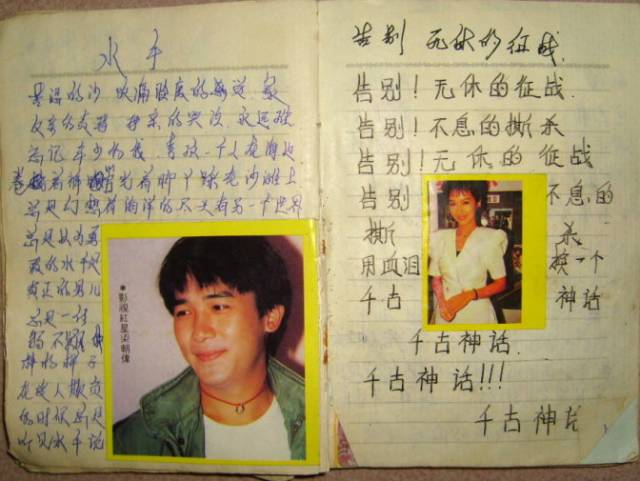 水手
苦涩的沙 吹痛脸庞的感觉 象
父亲的责骂 母亲的哭泣 永远难
忘记 年少的我 喜欢一个人在海边
卷着裤脚 光着脚丫踩在沙滩上
总是幻想着海洋的尽头有另一个世界
总是以为勇
敢的水手是
真正的男儿
总是一付
弱不禁风
的样子
在受人欺负
的时候总是
听见水手说
影視紅星梁朝偉
告别 无休的征战
告别!无休的征战
告别!不息的撕杀
告别!无休的征战
告别 不息的
撕 杀
用血泪 换一个
千古 神话
千古神话
千古神话!!!
千古神话